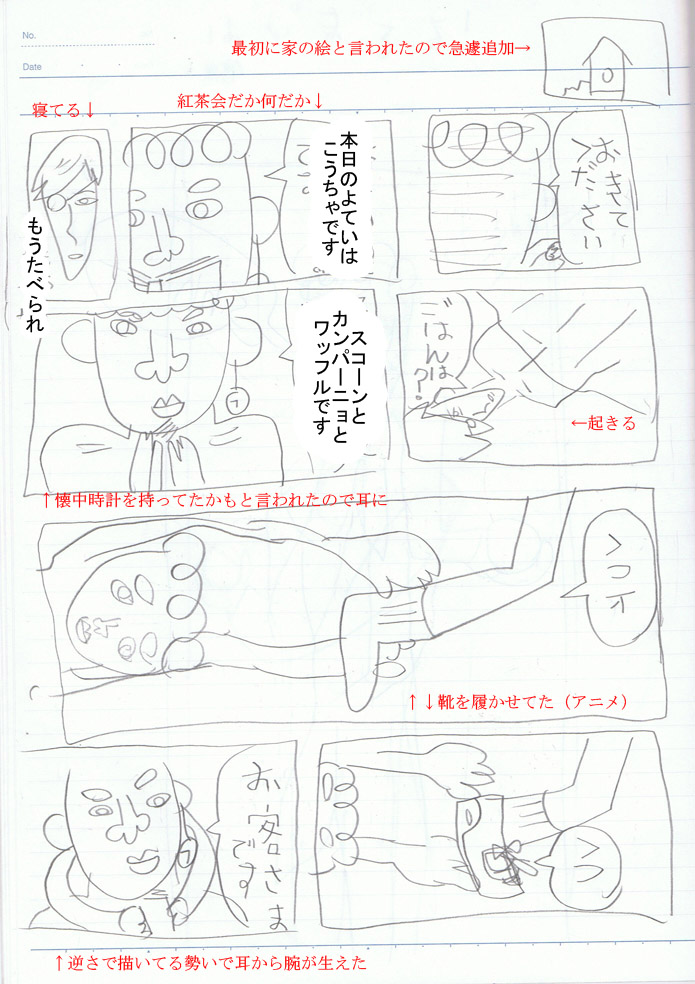 No.
Date
最初に家の絵と言われたので急遽追加→
紅茶会だか何だか↓
寝てる↓
おきて
ください
本日のよていは
こうちゃです
もうたべられ
ごはんは??
←起きる
スコーンと
カンパーニョと
ワッフルです
↑懐中時計を持ってたかもと言われたので耳に
↑↓靴を履かせてた（アニメ）
お客さま
です
↑逆さで描いてる勢いで耳から腕が生えた